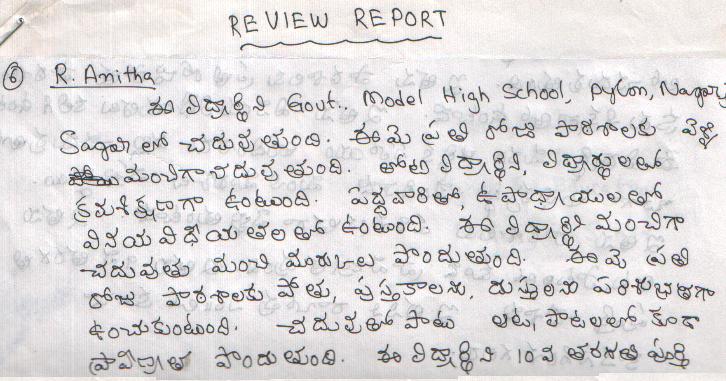 REVIEW REPORT
⑥ R. Anitha
ఈ విద్యార్థిని Govt., Model High School, Pylon, Nagarj
Sagar లో చదువుతుంది. ఈమె ప్రతి రోజు పాఠశాలకు వెళ్లి
మంచిగా చదువుతుంది. తోటి విద్యార్థిని, విద్యార్థులతో
క్రమశిక్షణగా ఉంటుంది. పెద్దవారితో, ఉపాధ్యాయులతో
వినయ విధేయతలతో ఉంటుంది. ఈ విద్యార్థిని మంచిగా
చదువుతు మంచి మార్కులు పొందుతుంది. ఈమె ప్రతి
రోజు పాఠశాలకు పోతు, పుస్తకాలను, దుస్తులను పరిశుభ్రతగా
ఉంచుకుంటుంది. చదువుతో పాటు ఆట, పాటలలో కూడా
ప్రావీణ్యత పొందుతుంది. ఈ విద్యార్థిని 10 వ తరగతి పూర్తి